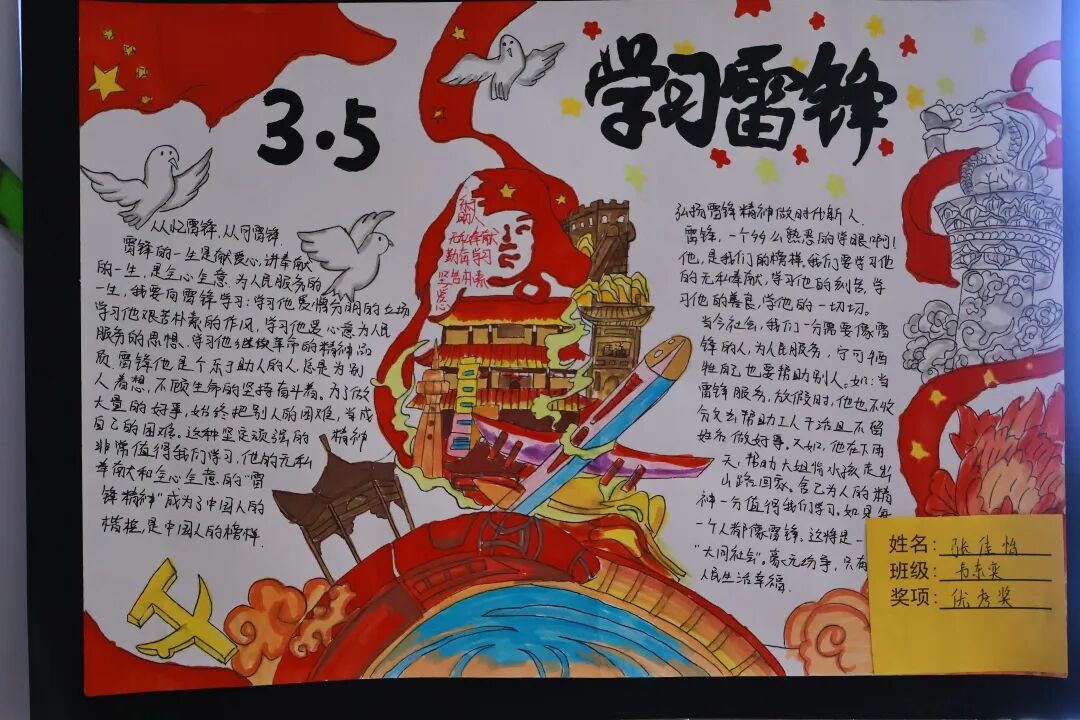 3·5
学习雷锋
从从忆雷锋，从何雷锋
雷锋的一生是献爱心，讲奉献
的一生，是全心全意，为人民服务的
一生，我要向雷锋学习：学习他爱憎分明的立场
学习他艰苦朴素的作风，学习他全心意为人民
服务的思想、学习他继续革命的精神品
质 雷锋他是个乐于助人的人，总是为别
人着想，不顾生命的坚持奋斗着。为了做
大量的好事，始终把别人的困难，当成
自己的困难。这种坚定顽强的 精神
非常值得我们学习，他的无私
奉献和全心全意的“雷
锋精神”成为了中国人的
楷模，是中国人的榜样
助人
无私奉献
勤奋学习
艰苦朴素
爱心
弘扬雷锋精神做时代新人
雷锋，一个多么熟悉的字眼啊！
他，是我们的榜样。我们要学习他
的无私奉献，学习他的刻苦，学
习他的善良，学他的一切切。
当今社会，我们一分需要像雷
锋的人，为人民服务，宁可牺
牲自己也要帮助别人。如：当
雷锋服务，放假时，他也不收
分文去帮助工人干活且不留
姓名做好事。又如，他在下雨
天，帮助大姐将小孩走出
山路回家。舍己为人的精
神一分值得我们学习。如果每
一个人都像雷锋。这将是一
“大同社会”。 只有
人民生活幸福
姓名：张佳怡
班级：韦东奕
奖项：优秀奖